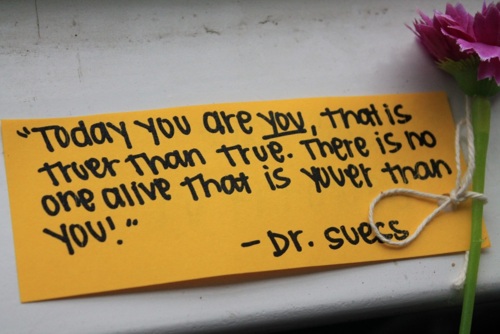 "Today you are you, that is
truer than true. There is no
one alive that is youer than
you!."
- Dr. Suess